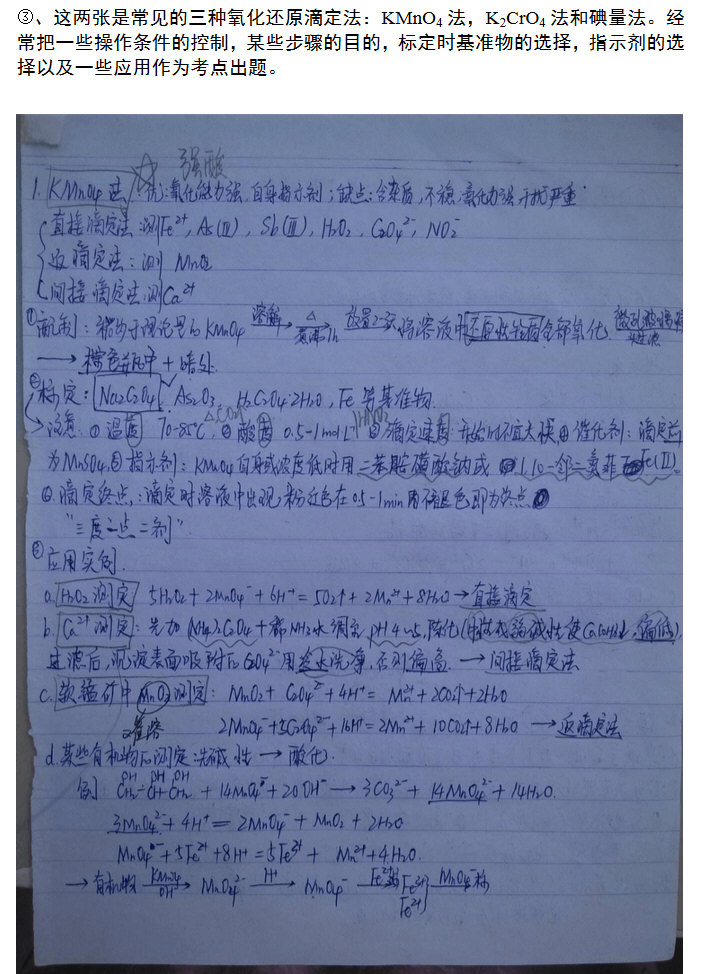 ③、这两张是常见的三种氧化还原滴定法：KMnO₄ 法，K₂CrO₄ 法和碘量法。经
常把一些操作条件的控制，某些步骤的目的，标定时基准物的选择，指示剂的选
择以及一些应用作为考点出题。
强酸
1. KMnO₄ 法 优：氧化能力强，自身指示剂；缺点：含杂质，不稳，氧化力强干扰严重
直接滴定法：测Fe²⁺, As(Ⅲ), Sb(Ⅲ), H₂O₂, C₂O₄²⁻, NO₂⁻
返滴定法：测 MnO₂
间接滴定法：测Ca²⁺
①配制：稍多于理论量的 KMnO₄ 溶解→ △ 1h 放置2-3天 将溶液中还原性物质全部氧化
→ 棕色瓶中 + 暗处
②标定：Na₂C₂O₄, As₂O₃, H₂C₂O₄·2H₂O, Fe 等基准物
注意：①温度 70-85℃, ②酸度 0.5-1mol·L⁻¹ ③滴定速度 开始时不宜太快 ④催化剂：滴定前
为MnSO₄ ⑤指示剂：KMnO₄自身或浓度低时用二苯胺磺酸钠或 1,10-邻二氮菲-Fe(Ⅱ)
⑥滴定终点：滴定时溶液中出现粉红色在0.5-1min内不褪色即为终点
"三度一点二剂"
③应用实例
a. H₂O₂测定 5H₂O₂ + 2MnO₄⁻ + 6H⁺ = 5O₂↑ + 2Mn²⁺ + 8H₂O → 直接滴定
b. Ca²⁺测定：先加 (NH₄)₂C₂O₄ + 稀NH₃水调至 pH 4~5, 陈化 偏低
过滤后，沉淀表面吸附的C₂O₄²⁻用 水洗净，否则偏高 → 间接滴定法
c. 软锰矿中MnO₂测定：MnO₂ + C₂O₄²⁻ + 4H⁺ = Mn²⁺ + 2CO₂↑ + 2H₂O
2MnO₄⁻ + 5C₂O₄²⁻ + 16H⁺ = 2Mn²⁺ + 10CO₂↑ + 8H₂O → 返滴定法
d. 某些有机物的测定：先碱性 → 酸化
例 CH₂-CH-CH₂ OH OH OH + 14MnO₄⁻ + 20OH⁻ → 3CO₃²⁻ + 14MnO₄²⁻ + 14H₂O
3MnO₄²⁻ + 4H⁺ = 2MnO₄⁻ + MnO₂ + 2H₂O
MnO₄⁻ + 5Fe²⁺ + 8H⁺ = 5Fe³⁺ + Mn²⁺ + 4H₂O
→ 有机物 KMnO₄ OH⁻ → MnO₄²⁻ H⁺ → MnO₄⁻ Fe²⁺ Fe³⁺ Fe²⁺ MnO₄⁻标